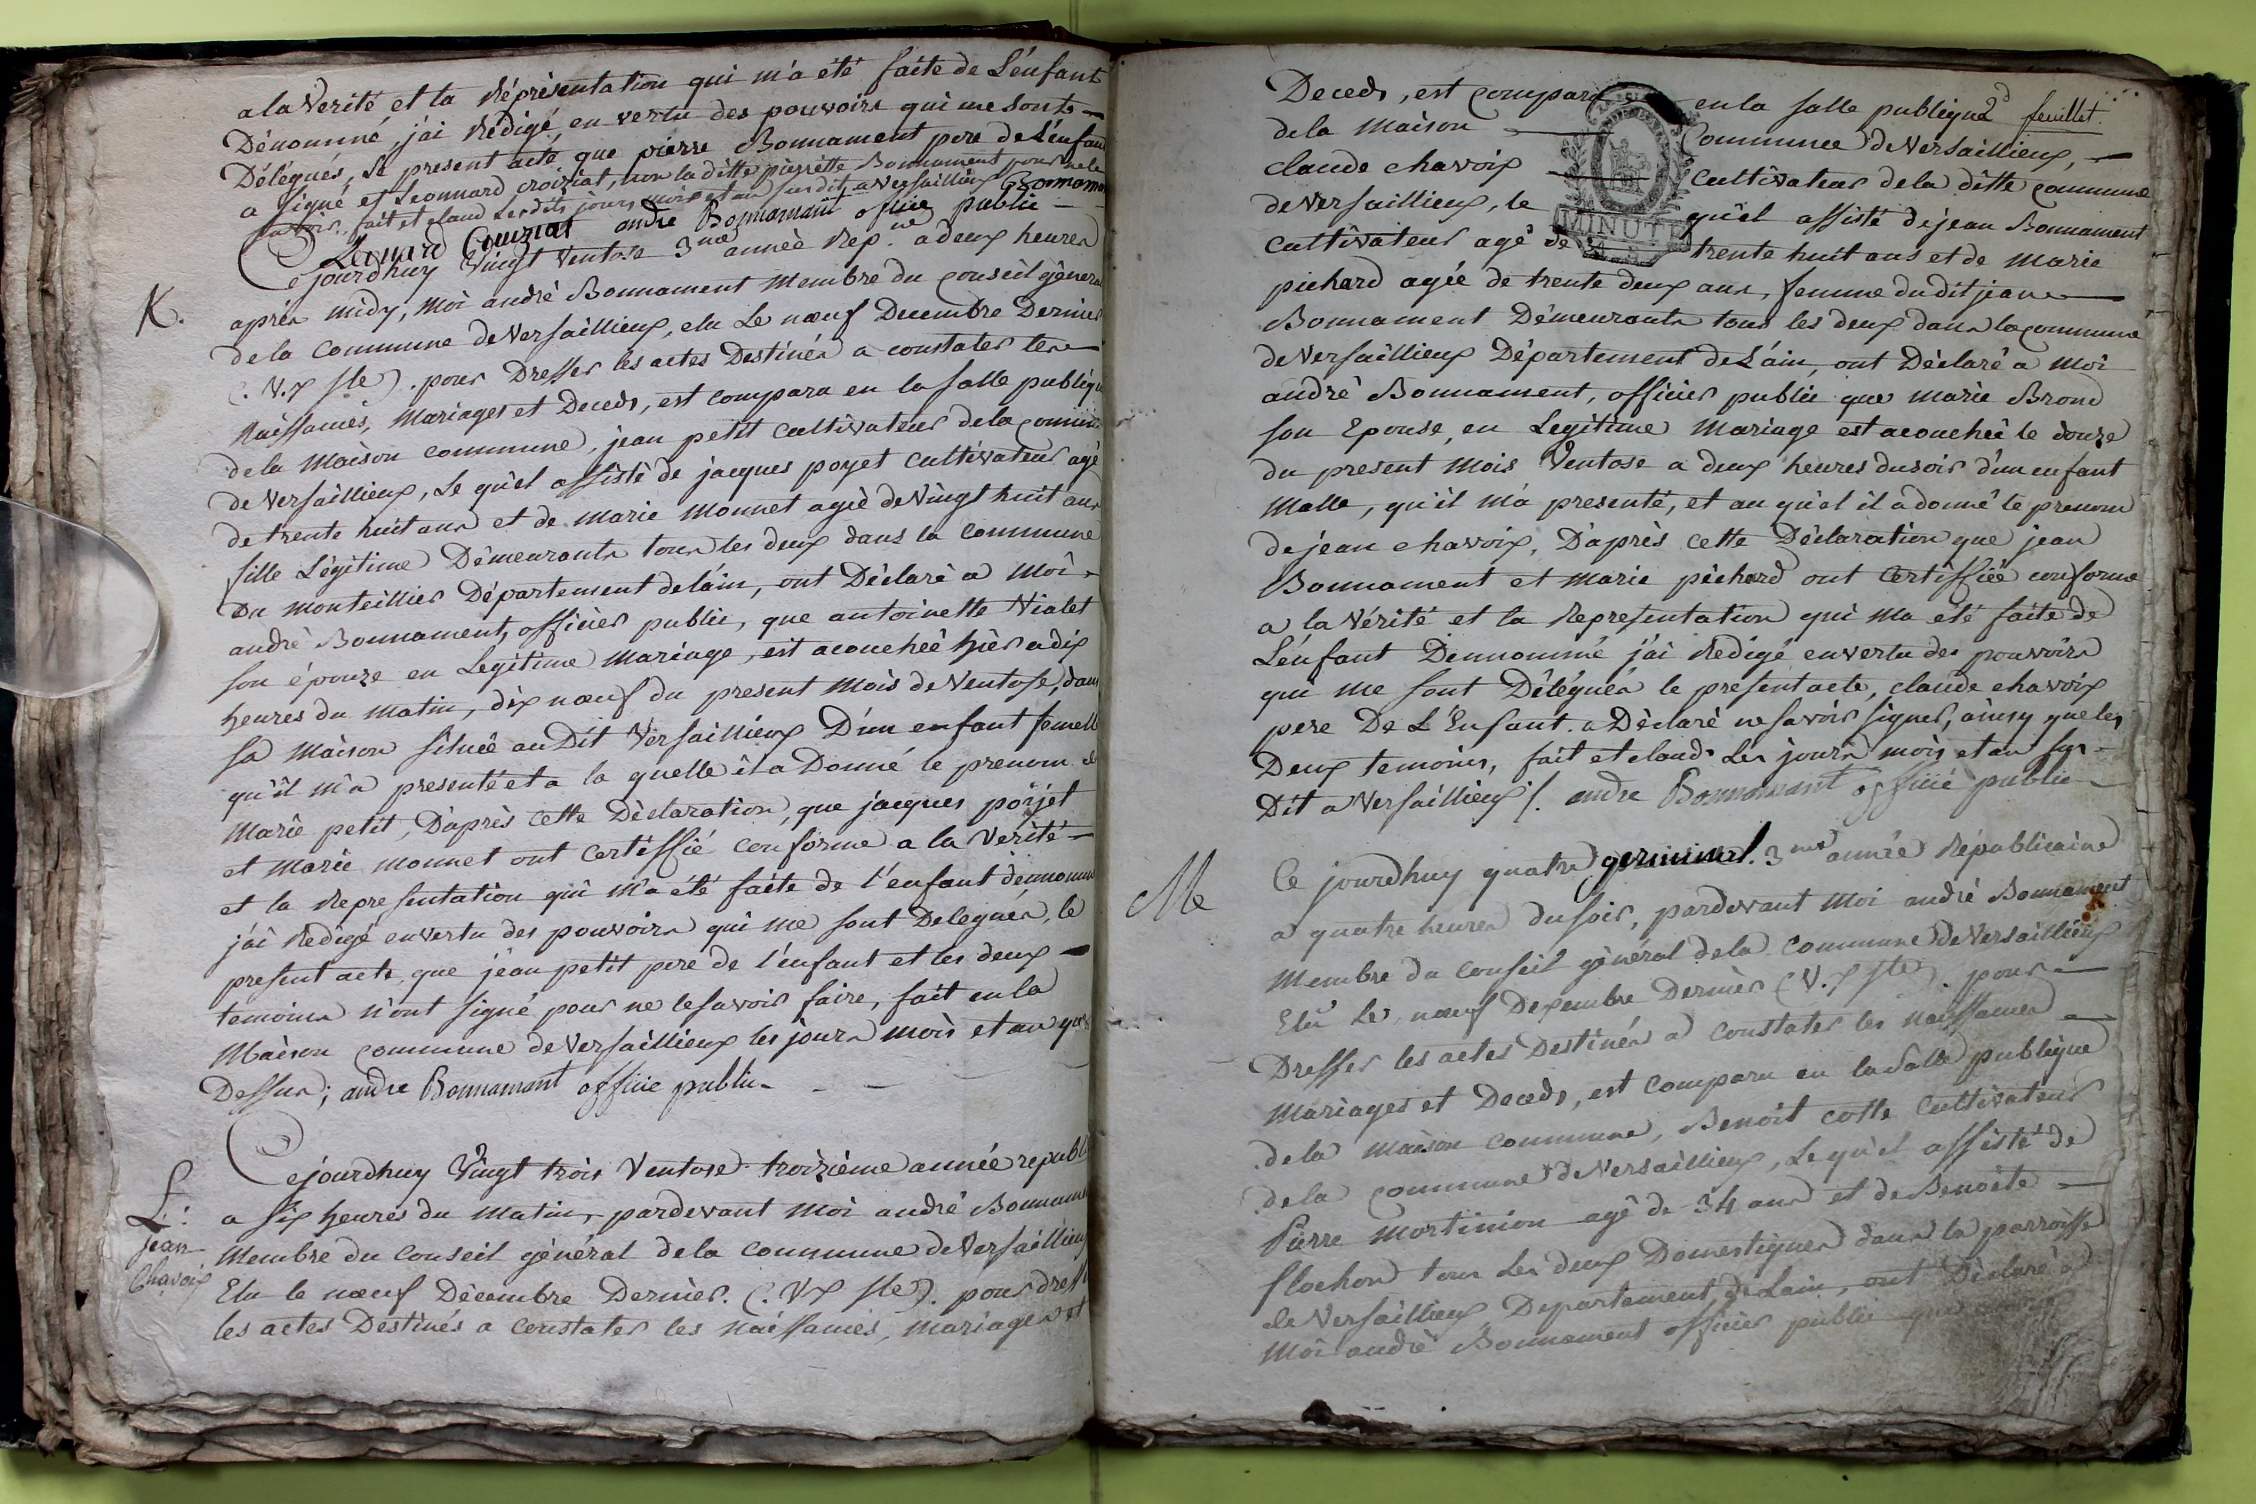 a la Verité et la Réprésentation qui m'a été faite de L'enfant
Dénommé, j'ai Redigé, en vertu des pouvoirs qui me sonts
Délégués, Le present acte que pierre Bonnament pere de L'enfant
a signé et Leonnard croiziat, non la ditte pierrette Bonnament pour ne le
savoir, fait et claud Lesdits jours mois et an susdit, a Versaillieux
Leonard Croiziat andre Bonnamant officie public
Cejourdhuy Vingt Ventose 3me année Rep.ne a deux heures
K.
après midy, Moi andré Bonnament Membre du conseil géneral
de la Commune de Versaillieux, elu Le nœuf Decembre Dernier
(. V.x sle). pour Dresser les actes Destinés a constater les
Naissances, Mariages et Deceds, est comparu en la salle publique
de la Maison commune, jean petit cultivateur de la commune
de Versaillieux, Le quel assisté de jacques poyet cultivateur agé
de trente huit ans et de marie monnet agée de Vingt huit ans
fille Légitime Démeurants tous les deux dans la Commune
Du monteillier Département de lain, ont Déclaré a Moi
andré Bonnament, officier public, que antoinette Vialet
son épouze en Legitime Mariage, est acouchée hier a dix
heures du matin, dix nœuf du present Mois de Ventose, dans
sa Maison située au Dit Versaillieux D'un enfant femelle
qu'il m'a presenté et a la quelle il a Donné le prenom de
Marie petit, D'après cette Déclaration, que jacques poijet
et Marie monnet ont Certiffié conforme a la Verité
et la Representation qui m'a été faite de l'enfant dénommé
j'ai Redigé en vertu des pouvoirs qui me sont Delegués, le
present acte, que jéan petit pere de l'enfant et les deux
temoins n'ont signé pour ne le savoir faire, fait en la
Maison commune de Versaillieux les jours mois et an que
Dessus; andre Bonnamant officie public
Cejourdhuy Vingt trois Ventose troizième année republi
L:
jean
Chavoix
a six heures du Matin, pardevant Moi andré Bonname
Membre du Conseil général de la commune de Versaillieux
Elu le nœuf Décembre Dernier. (. Vx sle). pour dress
les actes Destinés a constater les Naissances, mariages et
Deceds, est comparu en la salle publique 2d feuillet.
de la Maison Commune de Versaillieux,
claude chavoix Cultivateur de la ditte commune
de Versaillieux, le quel assisté de jean Bonnament
MINUTE
cultivateur agé de trente huit ans et de Marie
pichard agée de trente deux ans, femme du dit jean
Bonnament Démeurants tous les deux dans la commune
de Versaillieux Département de L'ain, ont Déclaré a Moi
andré Bonnament, officier public que marie Brond
son Epouse, en Legitime Mariage est acouchée le douze
du present Mois Ventose a deux heures du soir d'un enfant
Malle, qu'il m'a presenté, et au quel il a donné le prenom
de jean chavoix, D'après cette Déclaration que jean
Bonnament et Marie péchard ont Certiffiée conforme
a la Vérité et la Representation qui ma été faite de
L'énfant Dénnommé j'ai Redigé en vertu des pouvoirs
qui me sont Délégués le present acte, claude chavoix
pere De L'Enfant. a Déclaré ne savoir signer, ainsy que les
Deux temoins, fait et claud Les jours mois et an sus-
Dit a Versaillieux /. andre Bonnamant officié public
Ce jourdhuy quatre germinal. 3me année Républicaine
Me
a quatre heures du soir, pardevant Moi andré Bonnament
Membre du Conseil général de la Commune de Versaillieux
Elû Le nœuf Dexembre Dernier (V. x sle). pour
Dresser les actes Destinés a constater les naissances
Mariages et Deceds, est Comparu en la salle publique
de la maison commune, Benoit cotte Cultivateur
de la Commune de Versaillieux, Le quel assisté de
Pierre Mortinion agé de 34 ans et de Benoite
flochon tous Les deux Domestiques dans la parroisse
de Versaillieux Departement de Lain, ont Déclaré a
Moi andré Bonnament officier public que